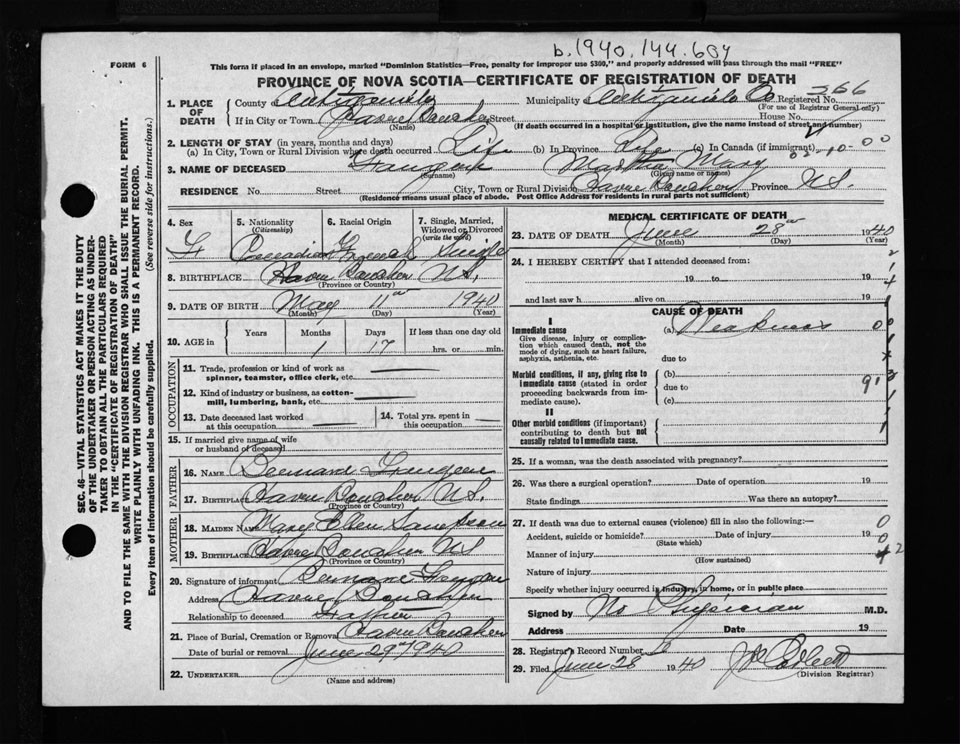 b.1940.144.604
FORM 6
This form if placed in an envelope, marked "Dominion Statistics—Free, penalty for improper use $300," and properly addressed will pass through the mail "FREE"
PROVINCE OF NOVA SCOTIA—CERTIFICATE OF REGISTRATION OF DEATH
1. PLACE OF DEATH County of Antigonish Municipality Antigonish Co Registered No. 366
(For use of Registrar General only)
If in City or Town Havre Boucher Street House No.
(Name) (If death occurred in a hospital or institution, give the name instead of street and number)
2. LENGTH OF STAY (in years, months and days)
(a) In City, Town or Rural Division where death occurred Life (b) In Province Life (c) In Canada (if immigrant) 02-10-00
3. NAME OF DECEASED Martha Mary
(Surname) (Given name or names)
RESIDENCE No. Street City, Town or Rural Division Havre Boucher Province N.S.
(Residence means usual place of abode. Post Office Address for residents in rural parts not sufficient)
4. Sex 5. Nationality 6. Racial Origin 7. Single, Married,
(Citizenship) Widowed or Divorced
(write the word)
F Canadian French Single
8. BIRTHPLACE Havre Boucher N.S.
(Province or Country)
9. DATE OF BIRTH May 11th 1940
(Month) (Day) (Year)
10. AGE in Years Months Days If less than one day old
1 17 hrs. or min.
OCCUPATION
11. Trade, profession or kind of work as
spinner, teamster, office clerk, etc.
12. Kind of industry or business, as cotton-
mill, lumbering, bank, etc.
13. Date deceased last worked 14. Total yrs. spent in
at this occupation this occupation
15. If married give name of wife
or husband of deceased
FATHER
16. NAME Bernard
17. BIRTHPLACE Havre Boucher N.S.
(Province or Country)
MOTHER
18. MAIDEN NAME Mary Ellen Sampson
19. BIRTHPLACE Havre Boucher NS
(Province or Country)
20. Signature of informant Bernard
Address Havre Boucher
Relationship to deceased Father
21. Place of Burial, Cremation or Removal Havre Boucher
Date of burial or removal June 29th 1940
22. UNDERTAKER
(Name and address)
MEDICAL CERTIFICATE OF DEATH
23. DATE OF DEATH June 28th 1940
(Month) (Day) (Year)
24. I HEREBY CERTIFY that I attended deceased from:
19 to 19
and last saw h alive on 19
CAUSE OF DEATH
I
Immediate cause (a) Weakness
Give disease, injury or complica-
tion which caused death, not the
mode of dying, such as heart failure,
asphyxia, asthenia, etc. due to
Morbid conditions, if any, giving rise to (b)
immediate cause (stated in order due to
proceeding backwards from im- (c)
mediate cause).
II
Other morbid conditions (if important)
contributing to death but not
causally related to immediate cause.
25. If a woman, was the death associated with pregnancy?
26. Was there a surgical operation? Date of operation 19
State findings Was there an autopsy?
27. If death was due to external causes (violence) fill in also the following:—
Accident, suicide or homicide? Date of injury 19
(State which)
Manner of injury
(How sustained)
Nature of injury
Specify whether injury occurred in industry, in home, or in public place
Signed by No Physician M.D.
Address Date 19
28. Registrar's Record Number 6
29. Filed June 28 1940
(Division Registrar)
SEC. 46—VITAL STATISTICS ACT MAKES IT THE DUTY
OF THE UNDERTAKER OR PERSON ACTING AS UNDER-
TAKER TO OBTAIN ALL THE PARTICULARS REQUIRED
IN THE "CERTIFICATE OF REGISTRATION OF DEATH"
AND TO FILE THE SAME WITH THE DIVISION REGISTRAR WHO SHALL ISSUE THE BURIAL PERMIT.
WRITE PLAINLY WITH UNFADING INK. THIS IS A PERMANENT RECORD.
Every item of information should be carefully supplied. (See reverse side for instructions.)